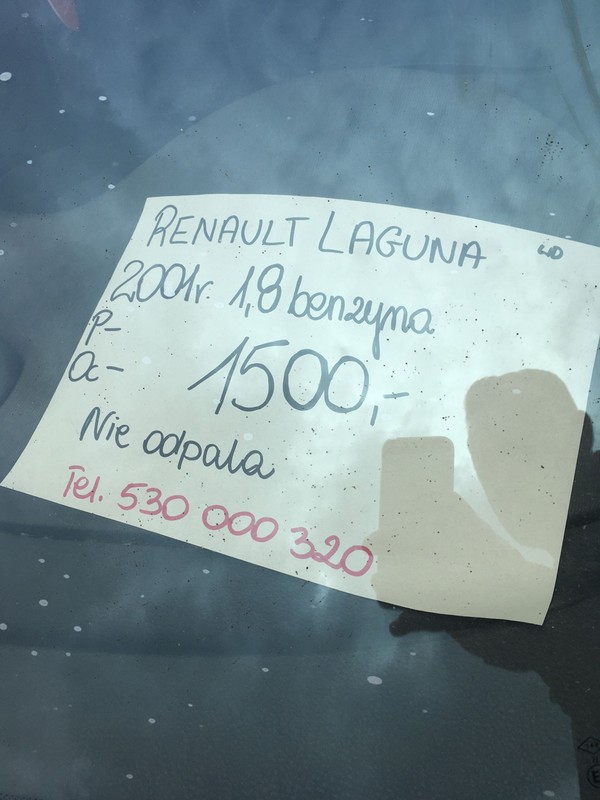 RENAULT LAGUNA
2001r. 1,8 benzyna
P-
Oc-
1500,-
Nie odpala
Tel. 530 000 320